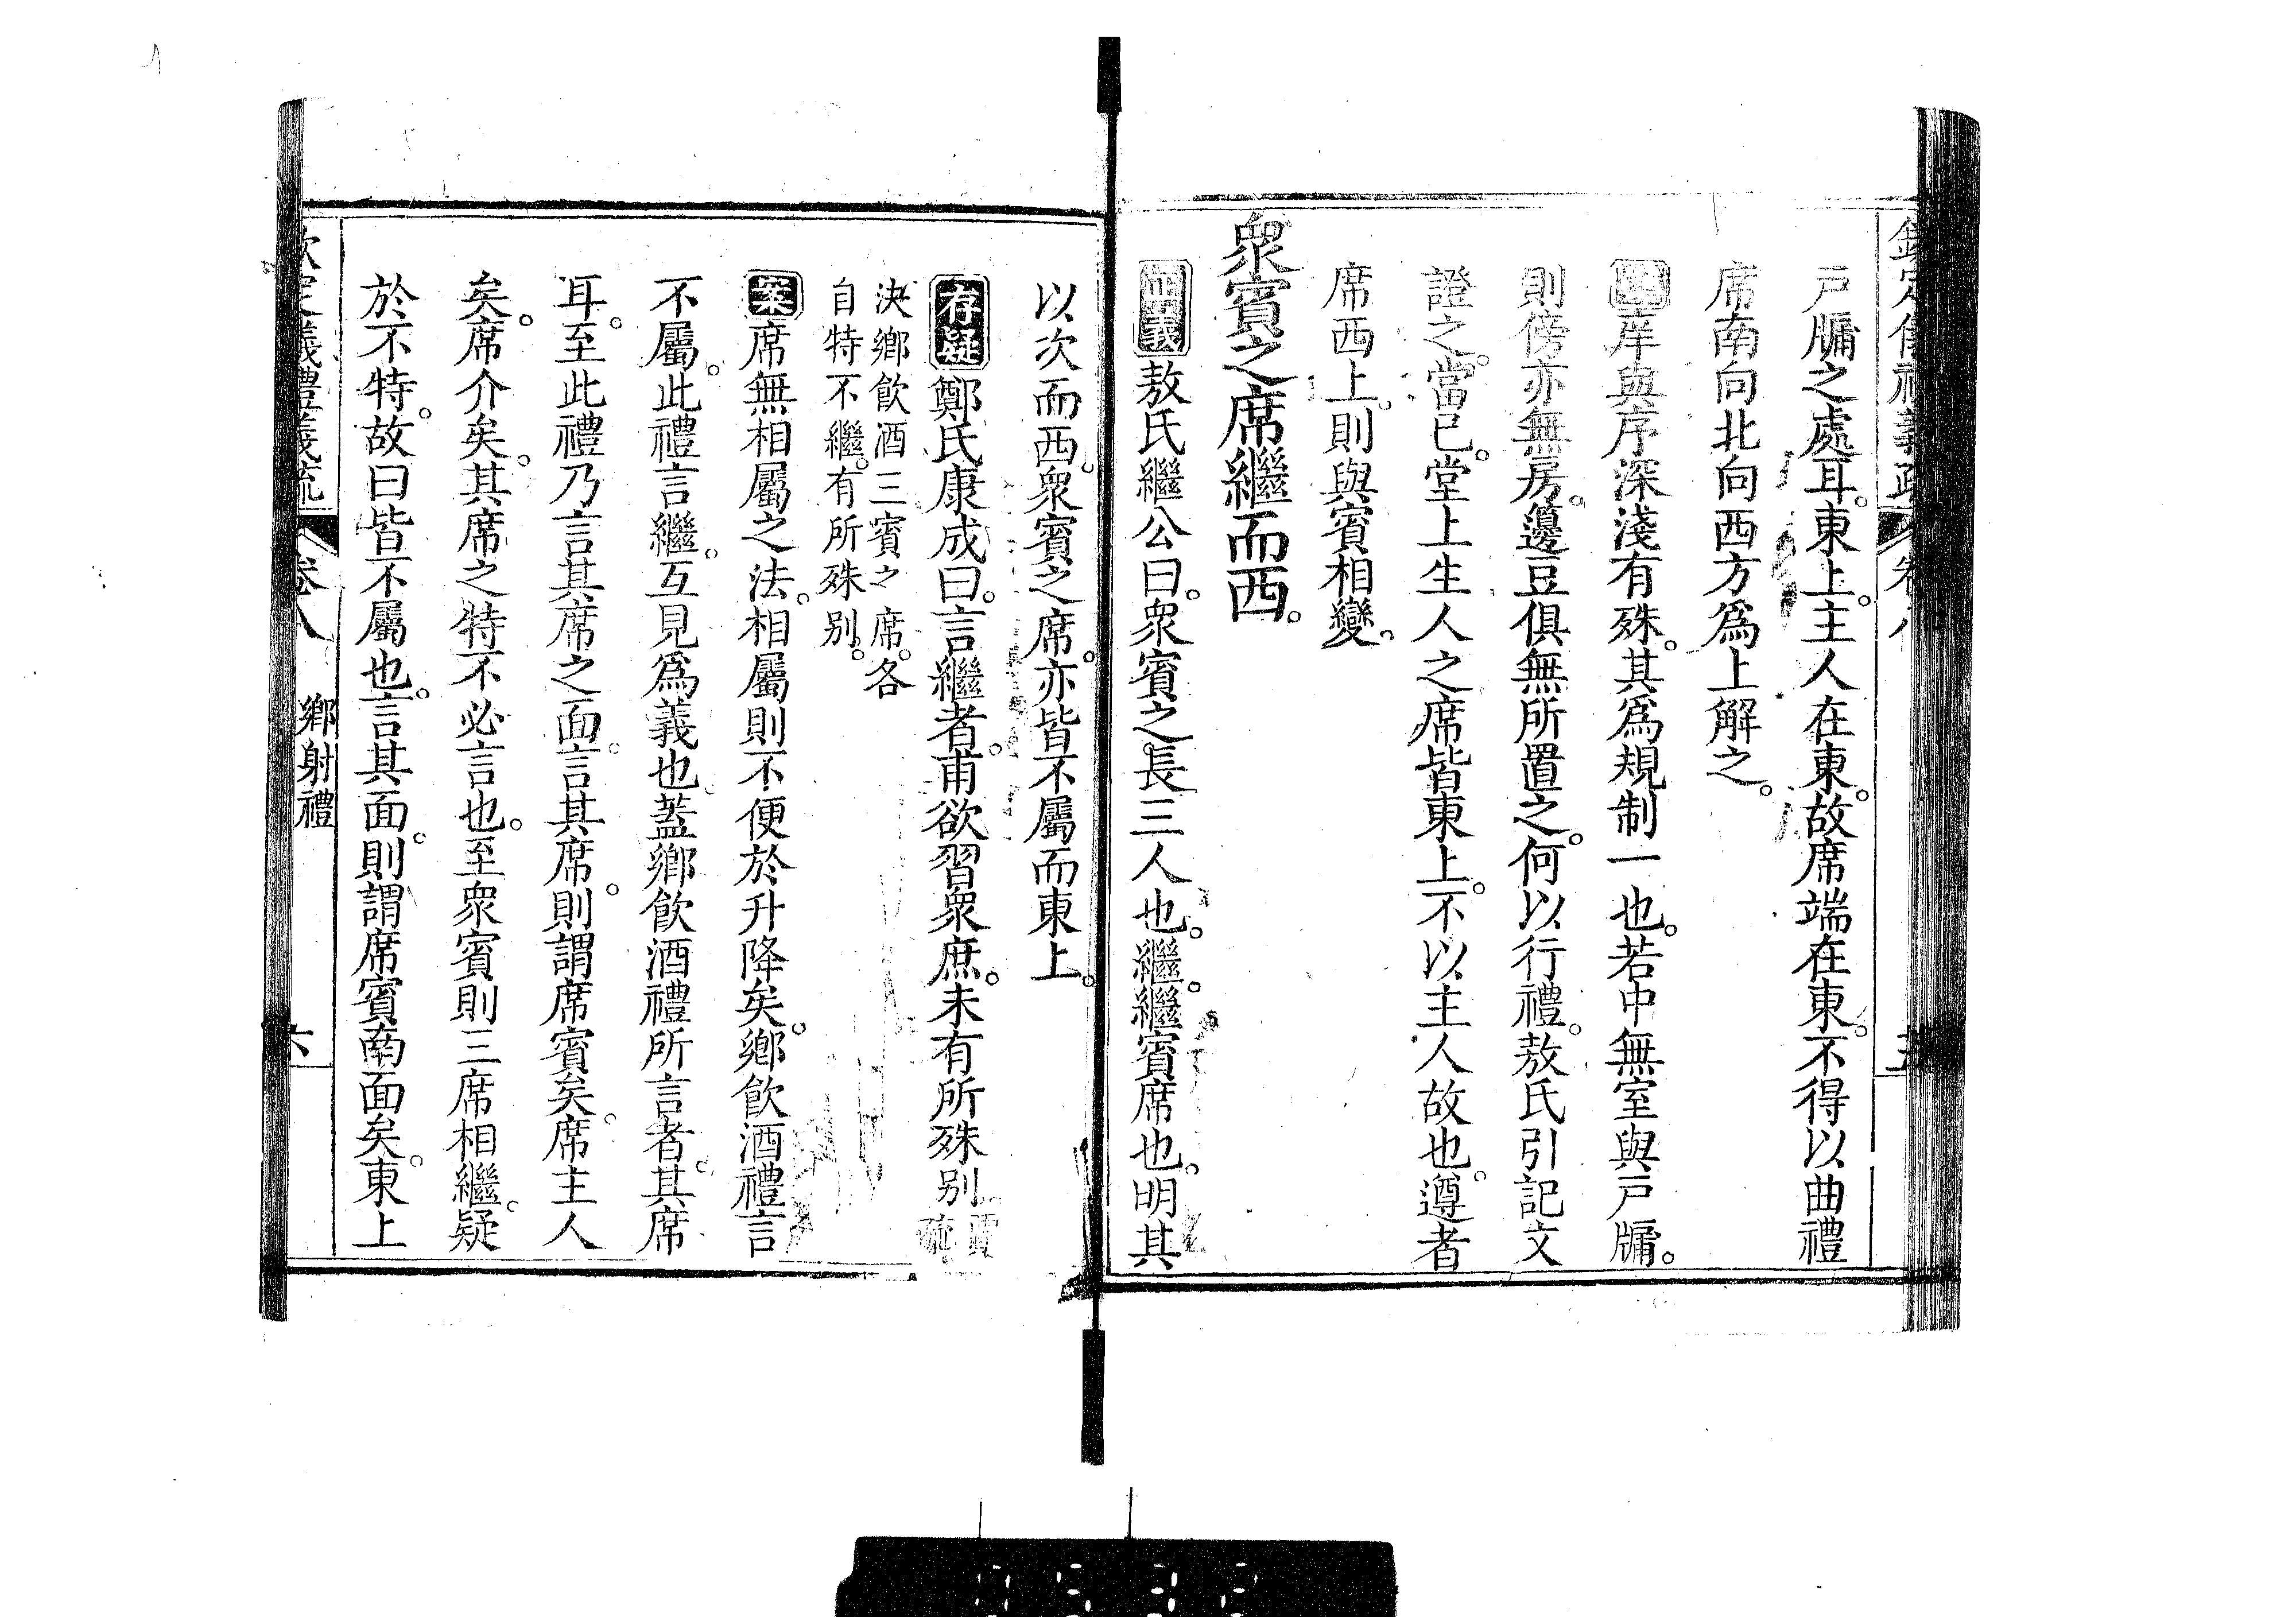 戸牖之處耳。東上。主人在東。故席端在東。不得以曲禮
席南向北向西方爲上解之。
庠與序深淺有殊。其爲規制一也。若中無室與戸牖。
則傍亦無房。籩豆俱無所置之。何以行禮。敖氏引記文
證之。當已。堂上生人之席皆東上。不以主人故也。遵者
席西上。則與賓相變。
衆賓之席繼而西。
敖氏繼公曰。衆賓之長三人也。繼。繼賓席也。明其
以次而西。衆賓之席。亦皆不屬而東上。
存疑 鄭氏康成曰。言繼者。甫欲習衆庶。未有所殊别。賈疏
決鄉飲酒三賓之席。各
自特不繼。有所殊别。
案 席無相屬之法。相屬則不便於升降矣。鄉飲酒禮言
不屬。此禮言繼。互見爲義也。蓋鄉飲酒禮所言者。其席
耳。至此禮乃言其席之面。言其席。則謂席賓矣。席主人
矣。席介矣。其席之特不必言也。至衆賓則三席相繼。疑
於不特。故曰皆不屬也。言其面。則謂席賓南面矣。東上
欽定儀禮義疏 卷八 鄉射禮 六